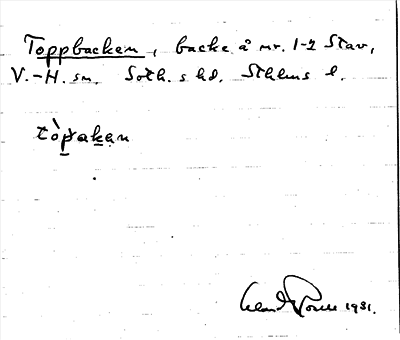 Toppbacken, backe å nr. 1-2 Stav,
V.-H. sn. Soth. s hd. Sthlms l.
tòpakan
1931.